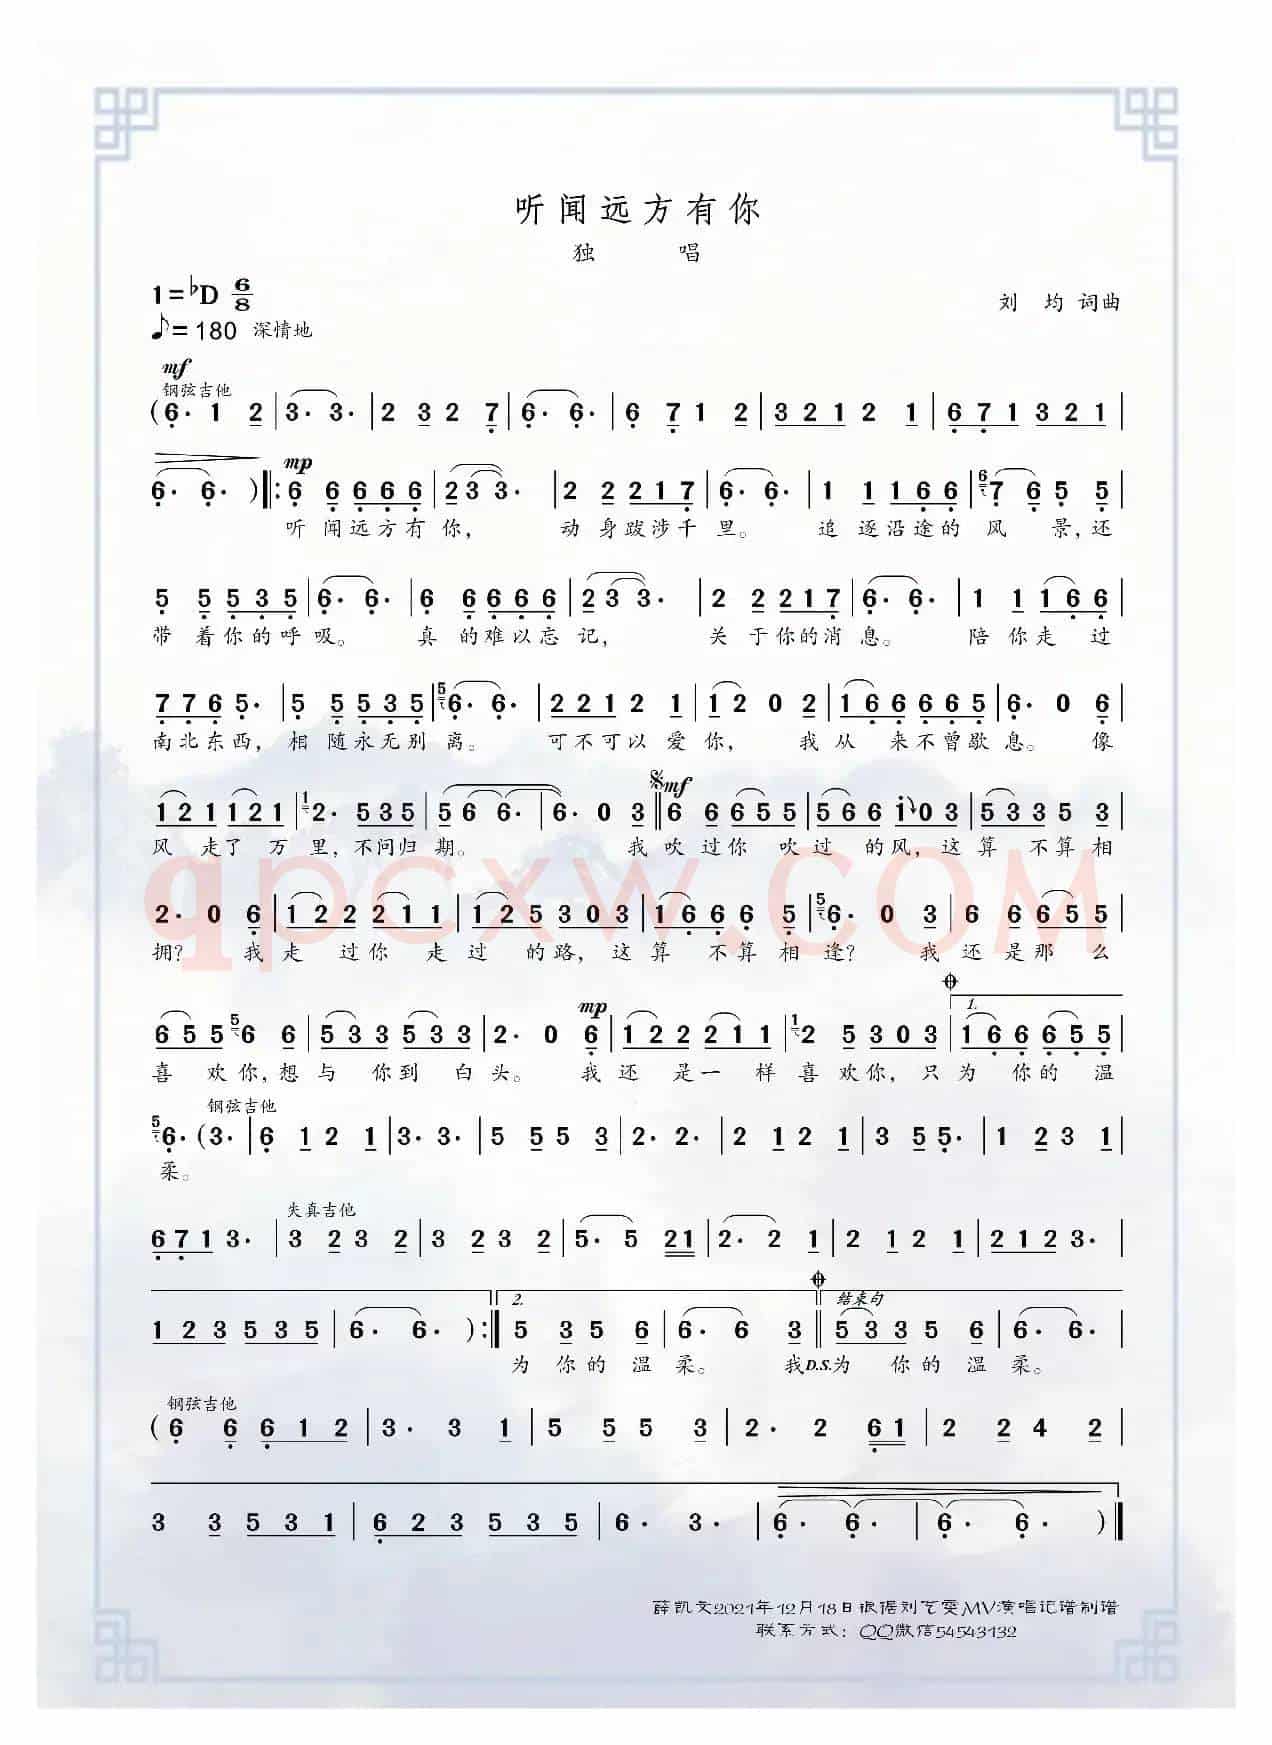 听闻远方有你
独 唱
1=♭D 6/8
刘 均 词曲
♪=180 深情地
mf
钢弦吉他
(6· 1 2 | 3· 3· | 2 3 2 7 | 6· 6· | 6 7 1 2 | 3 2 1 2 1 | 6 7 1 3 2 1 |
mp
6· 6· ) ‖: 6 6 6 6 6 | 2 3 3· | 2 2 2 1 7 | 6· 6· | 1 1 1 6 6 | 6 7 6 5 5 |
听 闻远方有 你， 动 身跋涉千 里。 追 逐沿途的 风 景,还
5 5 5 3 5 | 6· 6· | 6 6 6 6 6 | 2 3 3· | 2 2 2 1 7 | 6· 6· | 1 1 1 6 6 |
带 着你的呼 吸。 真 的难以忘 记， 关 于你的消 息。 陪 你走 过
7 7 6 5· | 5 5 5 3 5 | 5 6· 6· | 2 2 1 2 1 | 1 2 0 2 | 1 6 6 6 6 5 | 6· 0 6 |
南北东西， 相 随永无别 离。 可不可以 爱 你， 我 从 来不曾歇 息。 像
𝄋 mf
1 2 1 1 2 1 | 1 2· 5 3 5 | 5 6 6· | 6· 0 3 ‖ 6 6 6 5 5 | 5 6 6 i 0 3 | 5 3 3 5 3 |
风 走了 万 里, 不问归 期。 我 吹 过你 吹 过 的风，这 算 不算相
2· 0 6 | 1 2 2 2 1 1 | 1 2 5 3 0 3 | 1 6 6 6 5 | 5 6· 0 3 | 6 6 6 5 5 |
拥? 我 走 过你 走 过 的路，这 算 不算相 逢? 我 还 是那 么
mp
1.
6 5 5 5 6 6 | 5 3 3 5 3 3 | 2· 0 6 | 1 2 2 2 1 1 | 1 2 5 3 0 3 | 1 6 6 6 5 5 |
喜 欢你,想 与 你到 白 头。 我 还 是一 样 喜 欢你，只 为 你的 温
钢弦吉他
5 6· (3· | 6 1 2 1 | 3· 3· | 5 5 5 3 | 2· 2· | 2 1 2 1 | 3 5 5· | 1 2 3 1 |
柔。
失真吉他
6 7 1 3· | 3 2 3 2 | 3 2 3 2 | 5· 5 2 1 | 2· 2 1 | 2 1 2 1 | 2 1 2 3· |
2. 结束句
1 2 3 5 3 5 | 6· 6· ) :‖ 5 3 5 6 | 6· 6 3 ‖ 5 3 3 5 6 | 6· 6· |
为 你的 温 柔。 我D.S.为 你的 温 柔。
钢弦吉他
(6 6 6 1 2 | 3· 3 1 | 5 5 5 3 | 2· 2 6 1 | 2 2 4 2 |
3 3 5 3 1 | 6 2 3 5 3 5 | 6· 3· | 6· 6· | 6· 6· ) ‖
薛凯文2021年12月18日根据刘艺雯MV演唱记谱制谱
联系方式：QQ微信54543132
qpcxw.COM